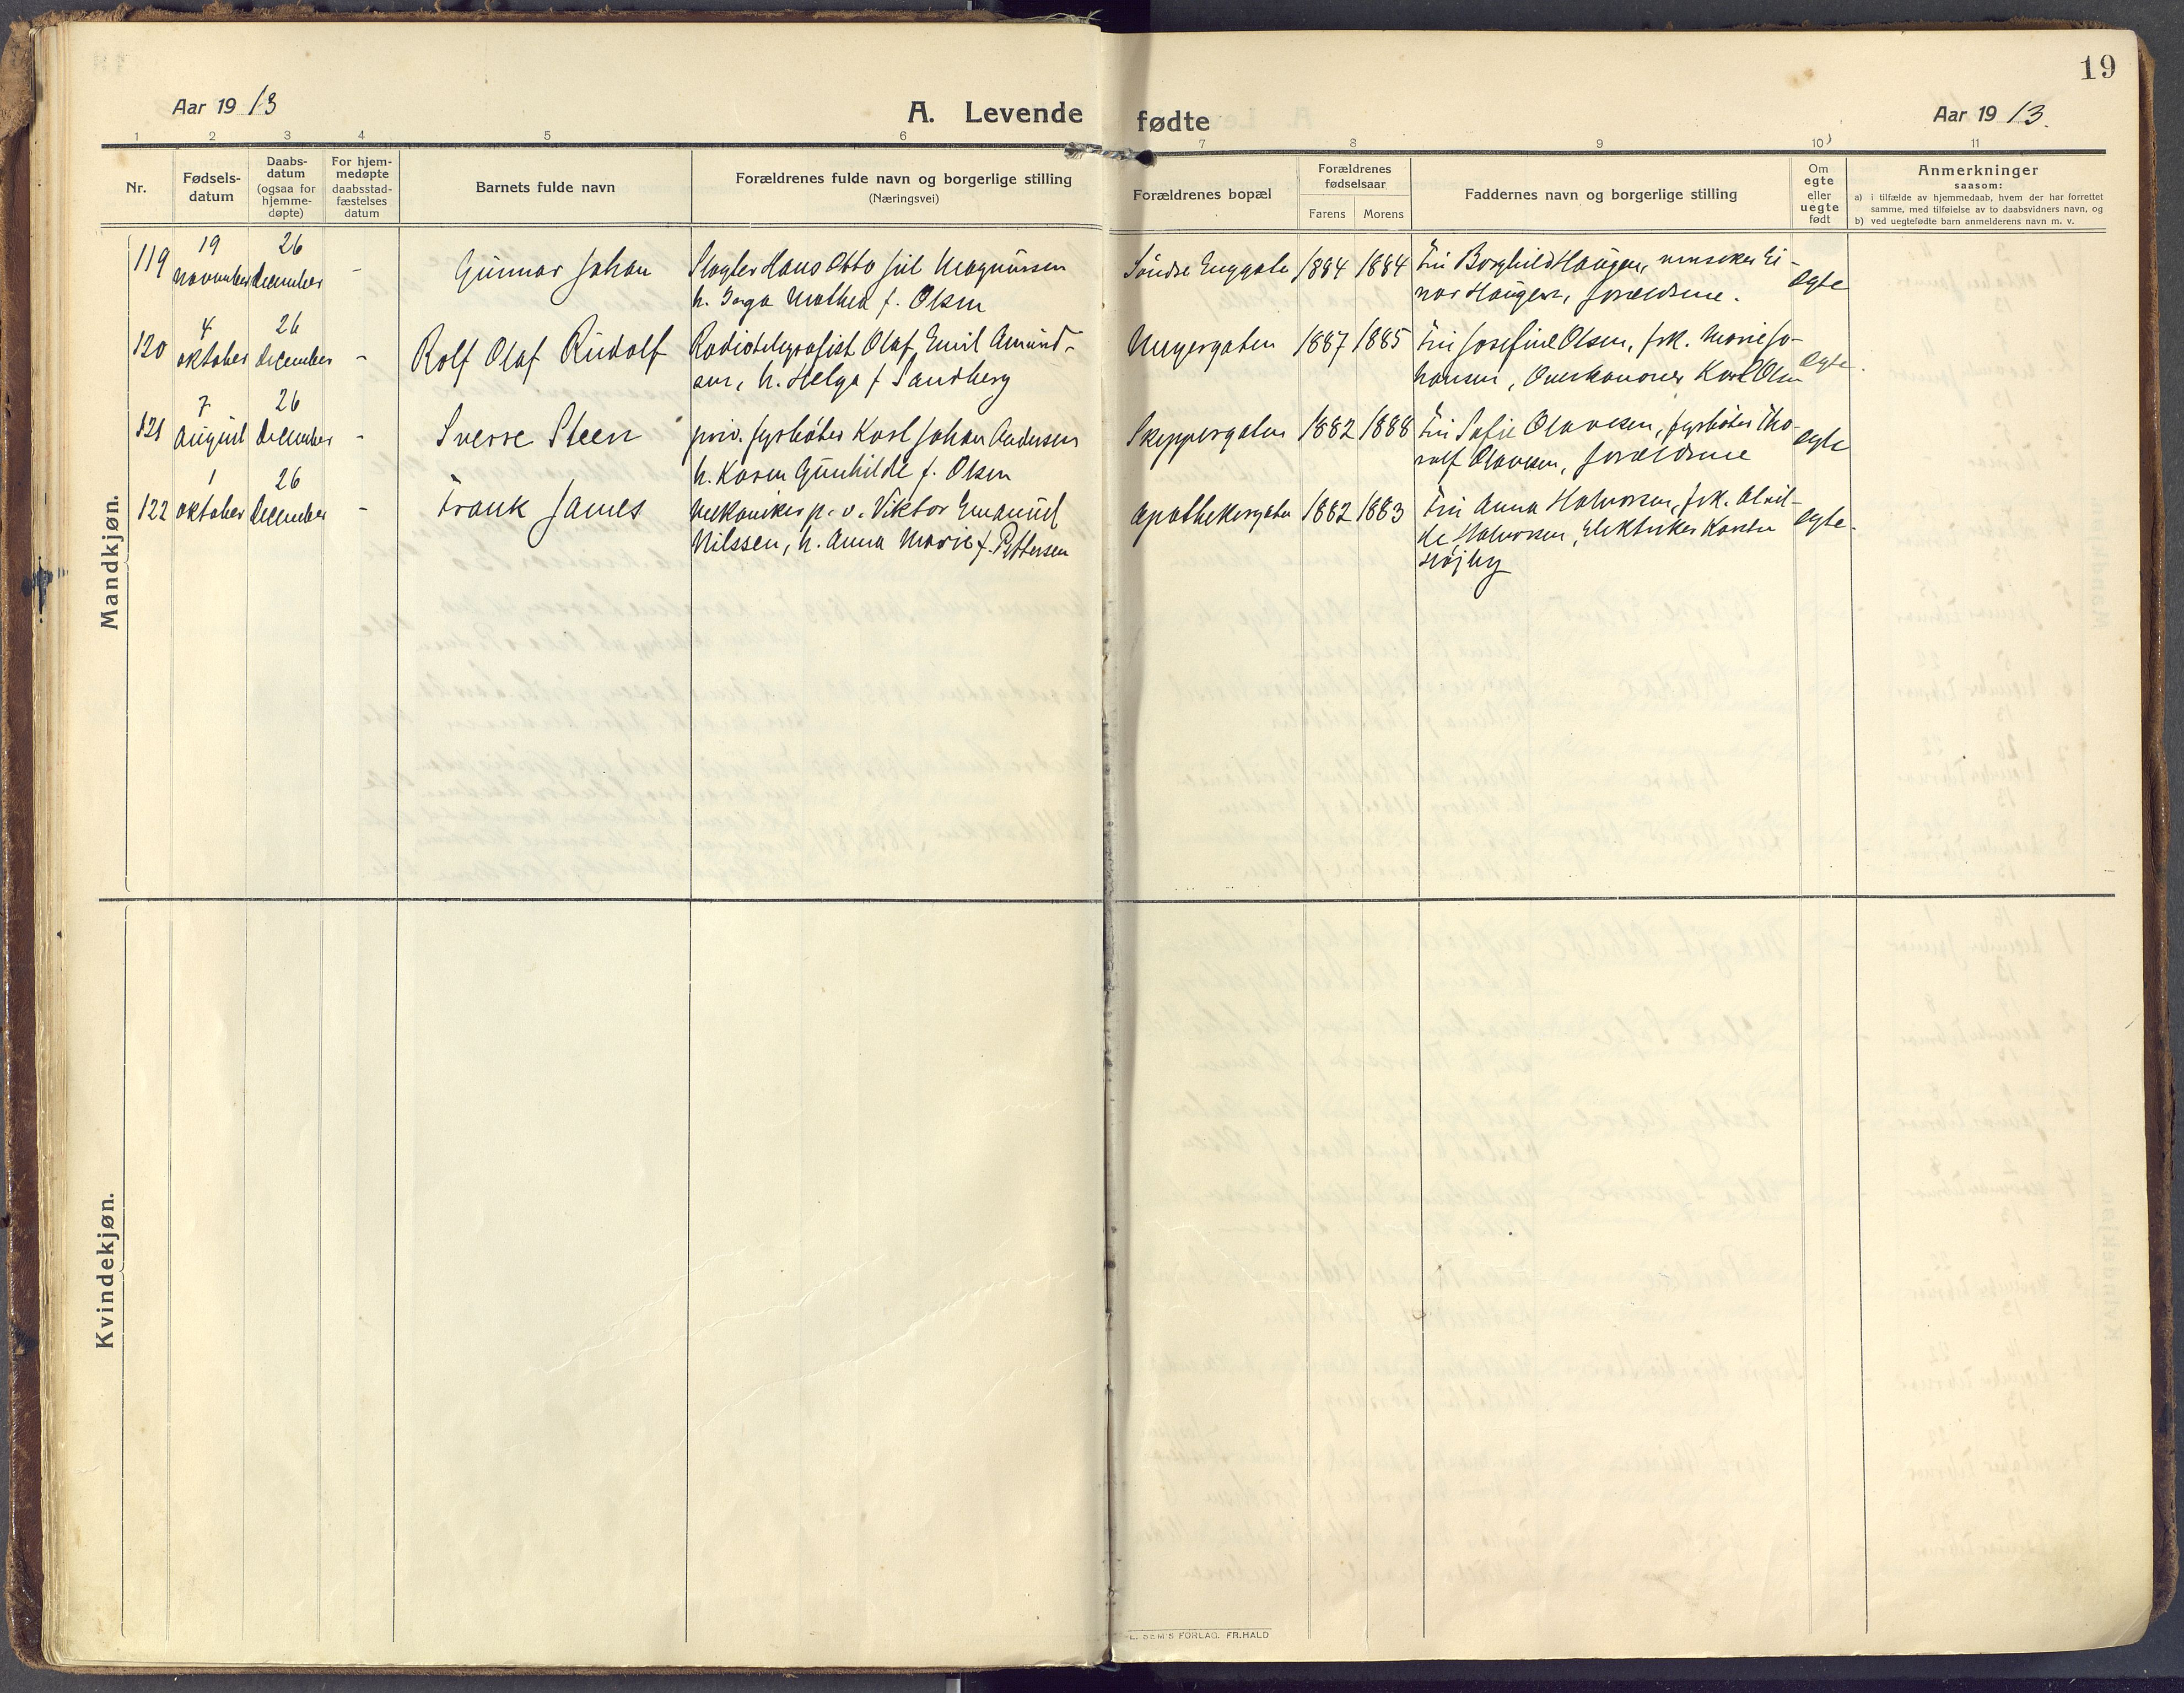 19
Aar 19 13
A. Levende fødte
Aar 19 13.
1 2 3 4 5 6 7 8 9 10) 11
Nr.
Fødsels-
datum
Daabs-
datum
(ogsaa for
hjemme-
døpte)
For hjem-
medøpte
daabsstad-
fæstelses
datum
Barnets fulde navn
Forældrenes fulde navn og borgerlige stilling
(Næringsvei)
Forældrenes bopæl
Forældrenes
fødselsaar
Farens Morens
Faddernes navn og borgerlige stilling
Om
egte
eller
uegte
født
Anmerkninger
saasom:
a) i tilfælde av hjemmedaab, hvem der har forrettet
samme, med tilføielse av to daabsvidners navn, og
b) ved uegtefødte barn anmelderens navn m. v.
Mandkjøn.
119
19
november
26
december
-
Gunnar Johan
Slagter Hans Otto Juil Magnussen
h. Inga Mathea f. Olsen
Søndre Enggate
1884 1884
Fru Borghild Haugen, Ei-
nar Haugen, forældrene.
egte
120
4
oktober
26
december
-
Rolf Olaf Rudolf
Radiotelegrafist Olaf Emil Amund-
sen, h. Helga f Sandberg
Meyergaten
1887 1885
Fru Josefine Olsen, frk. Marie Jo-
hansen, Overkanoner Karl Olsen
egte.
121
7
august
26
december
-
Sverre Steen
priv. fyrbøter Karl Johan Andersen
h. Karen Gunhilde f. Olsen
Skippergaten
1882 1888
Fru Sofie Olavesen, fyrbøter Tho-
ralf Olavesen, forældrene
egte
122
1
oktober
26
december
-
Frank James
Mekaniker p. v. Viktor Emanuel
Nilssen, h. Anna Marie f. Pettersen
Apothekergaten
1882 1883
Fru Anna Halvorsen, frk. Alvil-
de Halvorsen, Elektriker Karsten
Højby
egte.
Kvindekjøn.
E. SEM'S FORLAG. FR. HALD